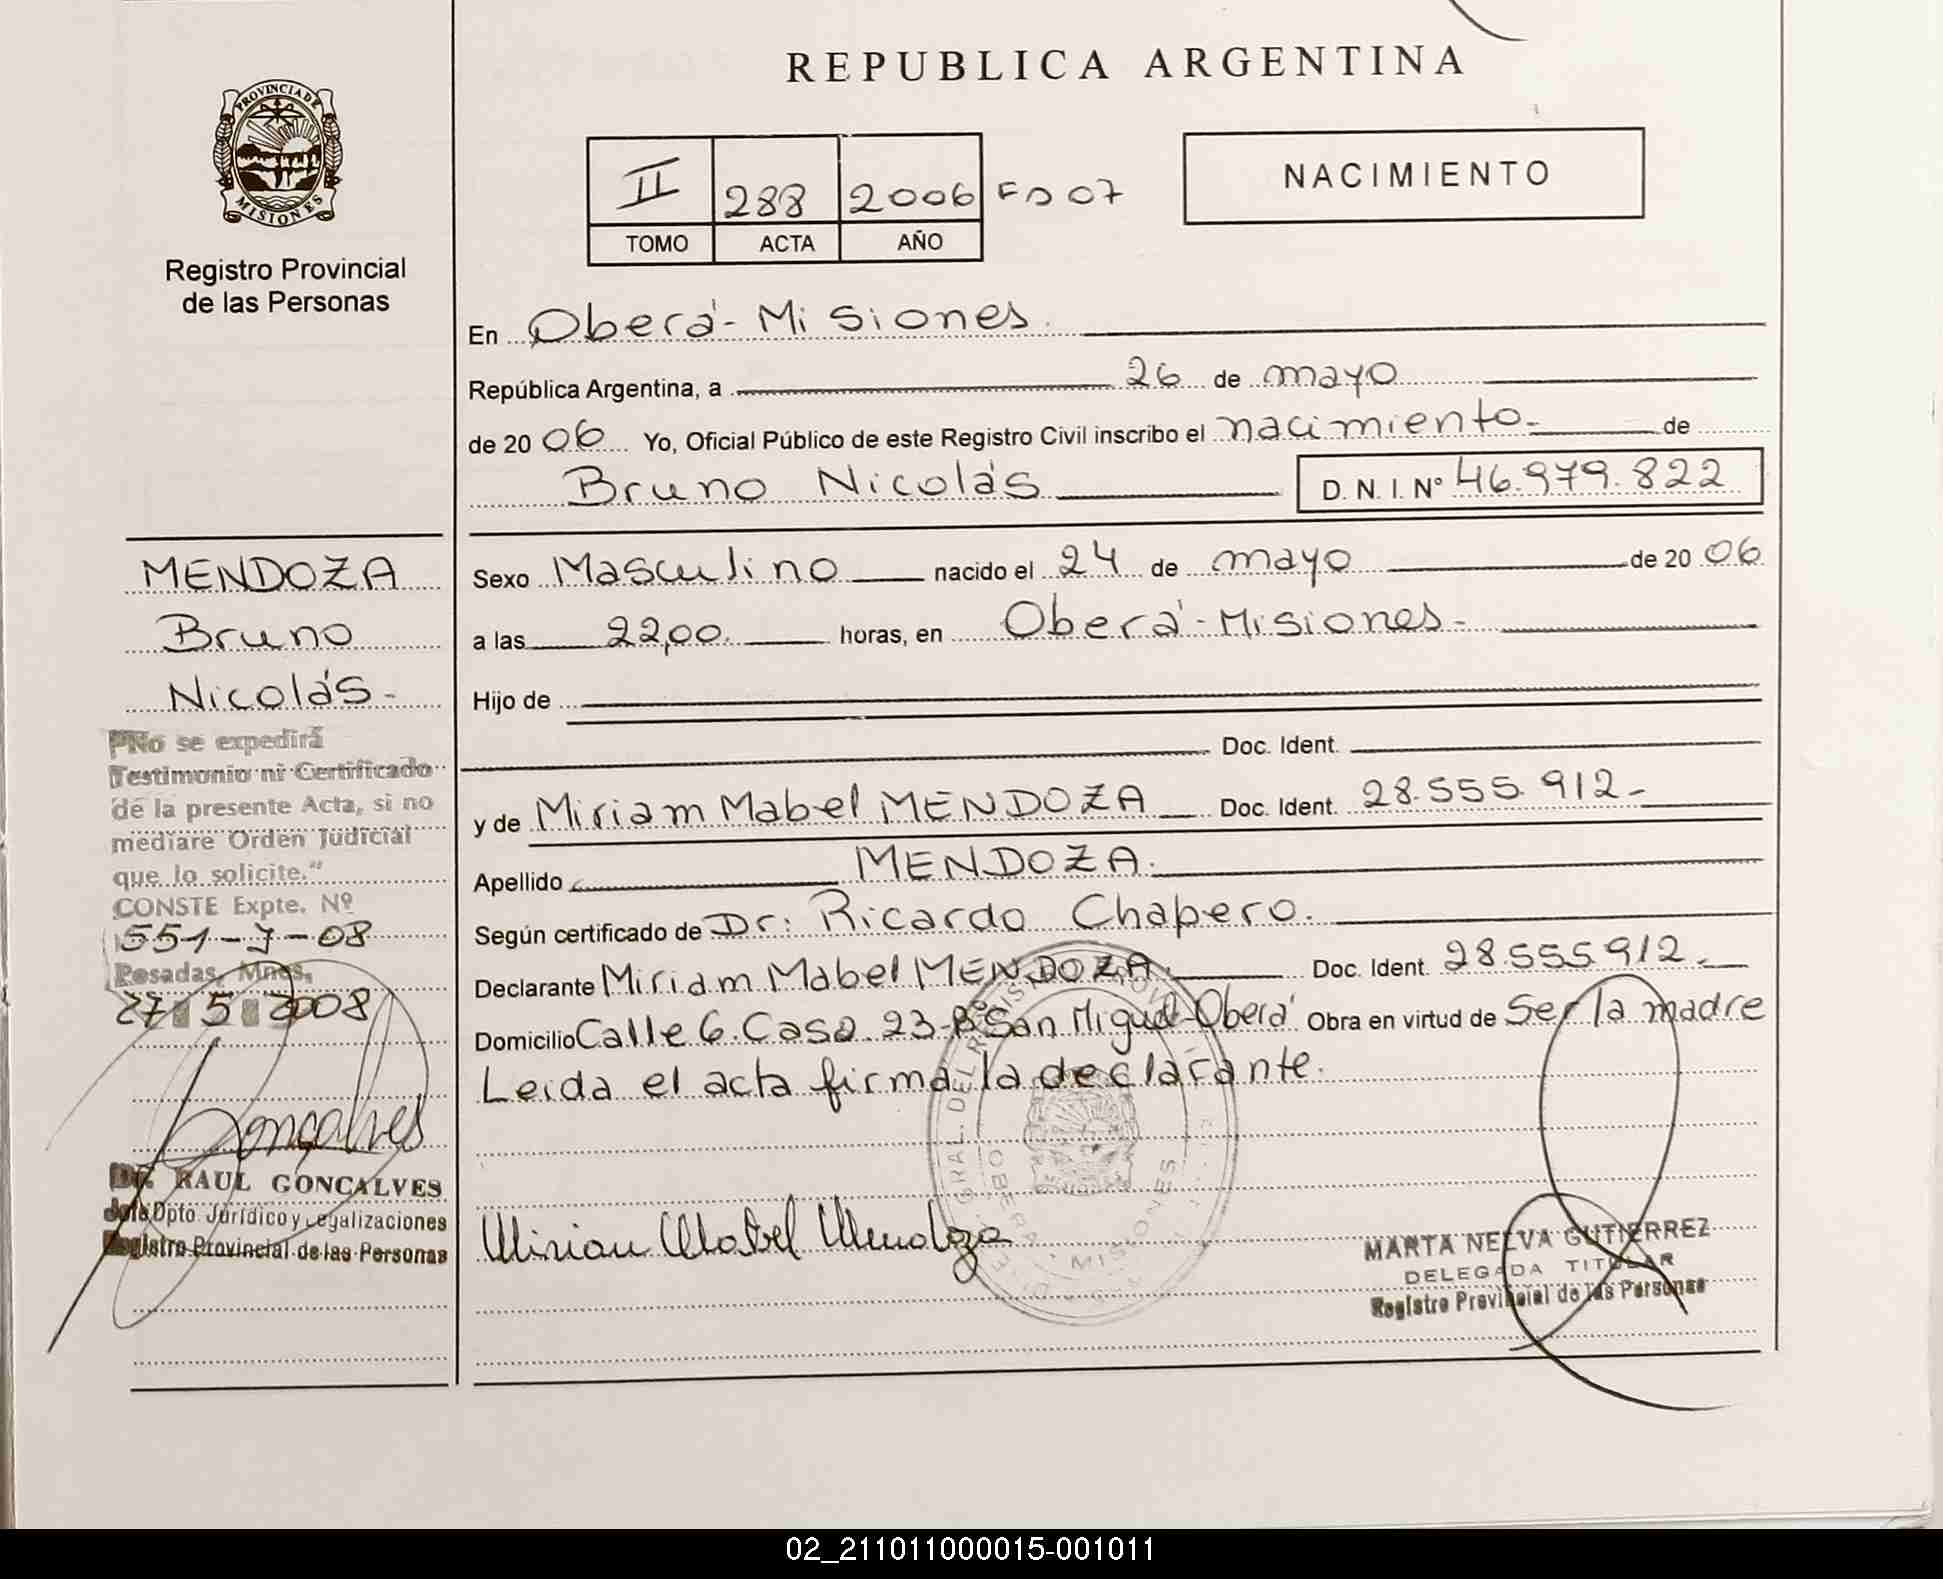 REPUBLICA ARGENTINA
PROVINCIA DE
MISIONES
Registro Provincial
de las Personas
II 288 2006 Fo 07
TOMO ACTA AÑO
NACIMIENTO
En Oberá - Misiones.
República Argentina, a 26 de mayo
de 20 06 Yo, Oficial Público de este Registro Civil inscribo el nacimiento - de
Bruno Nicolás D. N. I. Nº 46.979.822
Sexo Masculino nacido el 24 de mayo de 20 06
a las 22,00. horas, en Oberá - Misiones -
Hijo de
Doc. Ident.
y de Miriam Mabel MENDOZA Doc. Ident. 28.555.912-
Apellido MENDOZA.
Según certificado de Dr: Ricardo Chapero.
Declarante Miriam Mabel MENDOZA. Doc. Ident. 28.555.912.
Domicilio Calle 6. Casa 23-Bº San Miguel-Oberá Obra en virtud de Ser la madre
Leida el acta firma la declarante.
Mirian Mabel Mendoza
MARTA NELVA GUTIERREZ
DELEGADA TITULAR
Registro Provincial de las Personas
MENDOZA
Bruno
Nicolás -
No se expedirá
Testimonio ni Certificado
de la presente Acta, si no
mediare Orden Judicial
que lo solicite."
CONSTE Expte. Nº
551-J-08
Posadas, Mnes,
27 5 2008
Gonçalves
Dr. RAUL GONCALVES
Jefe Dpto. Jurídico y Legalizaciones
Registro Provincial de las Personas
OBERA
MISIONES
02_211011000015-001011